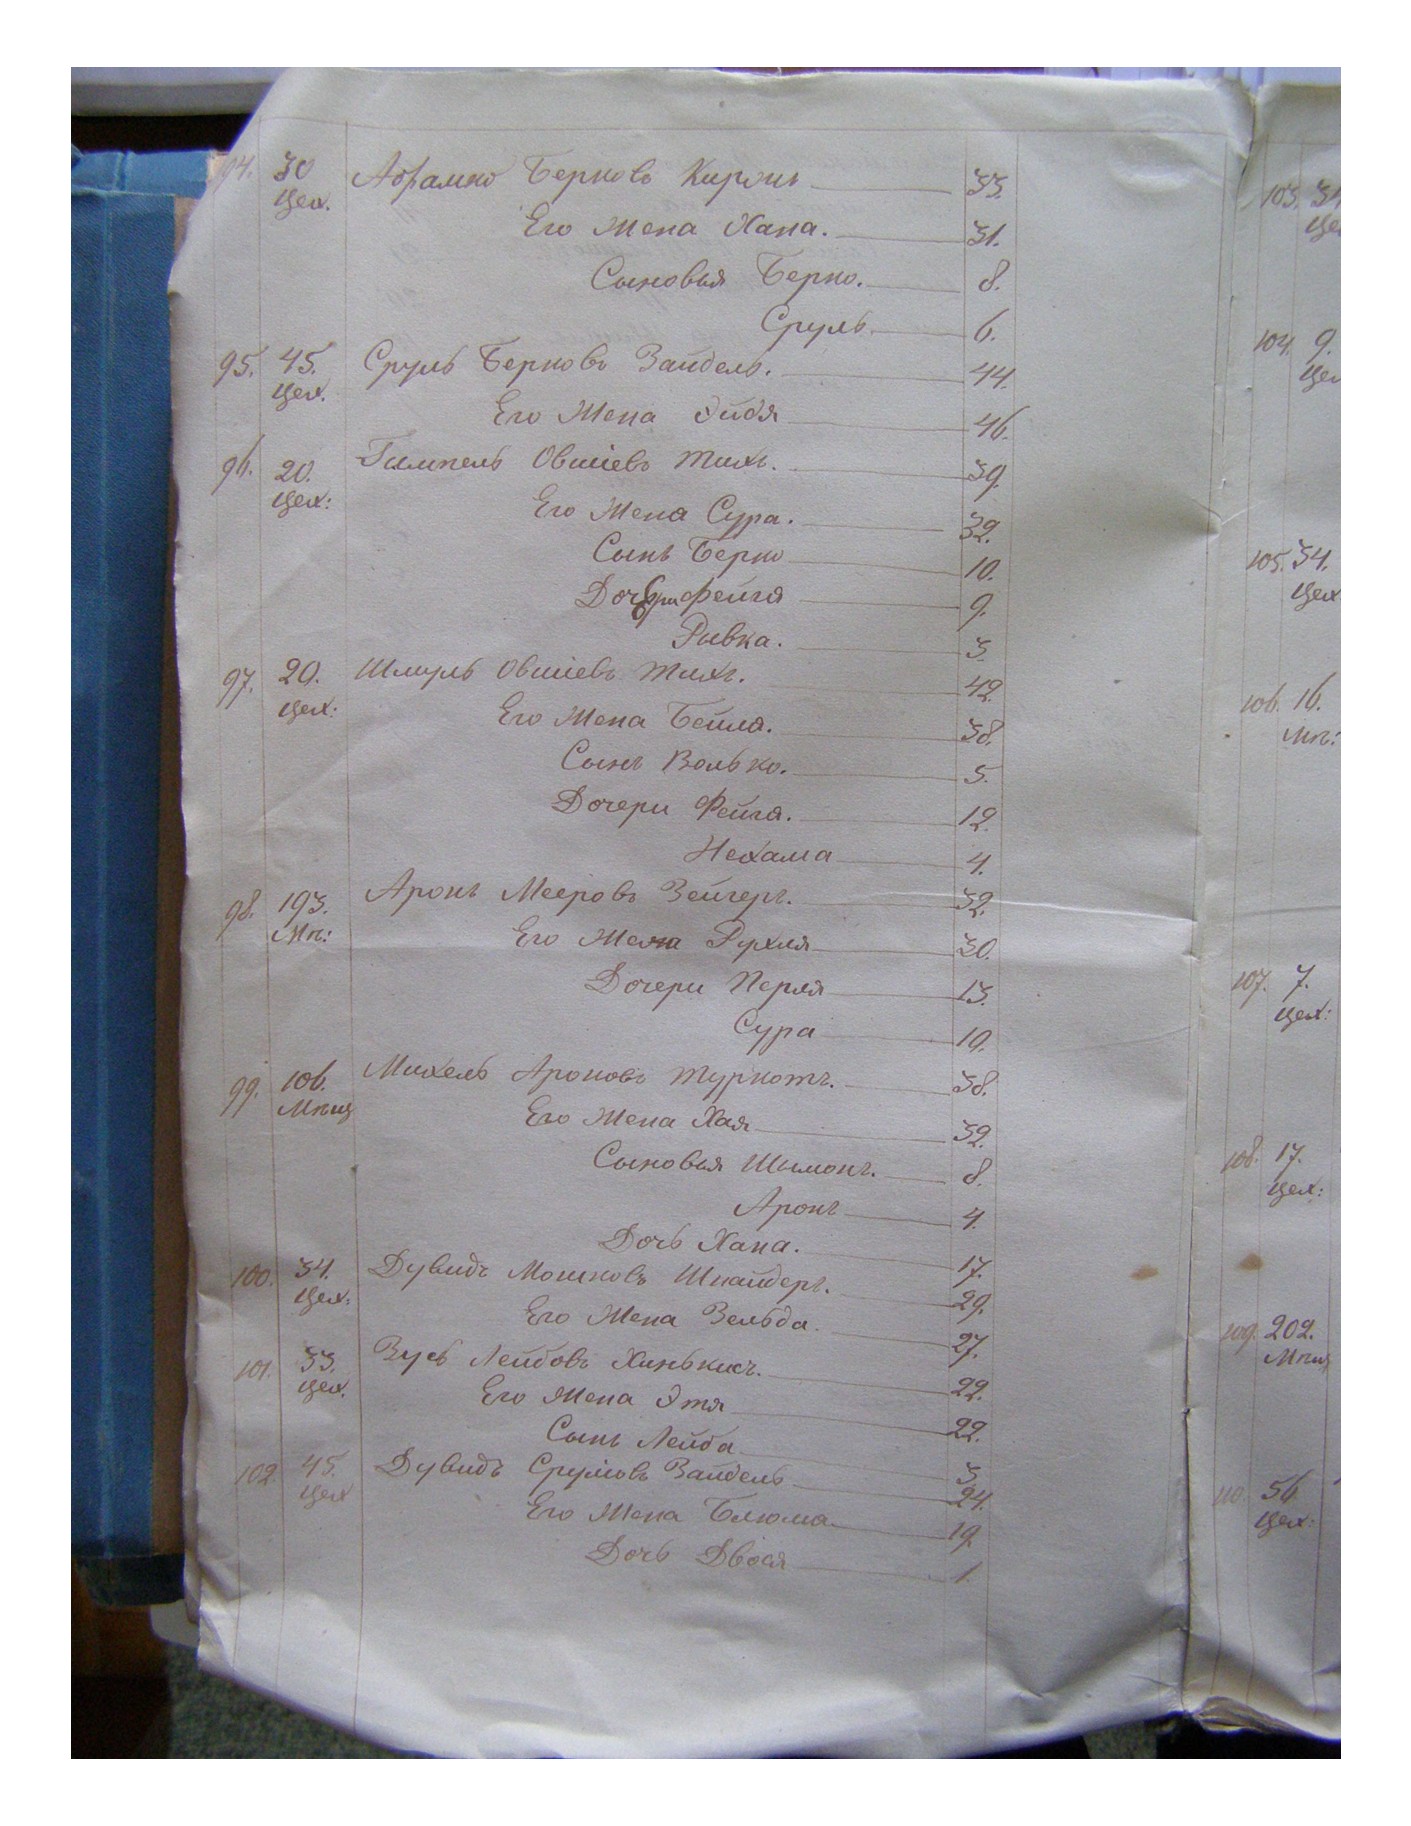 94. 30 Абрамко Берковъ Киронъ 33.
Цех. Его Жена Хана. 31.
Сыновья Берко. 8.
Сруль. 6.
95. 45. Сруль Берковъ Зайдель. 44.
Цех. Его Жена Эйдя 46.
96. 20. Гимпель Овшiевъ Тихъ. 39.
Цех: Его Жена Сура. 32.
Сынъ Берко 10.
Дочери Фейгя 9.
Рывка. 3.
97. 20. Шмуль Овшiевъ Тихъ. 42.
Цех: Его Жена Бейла. 38.
Сынъ Волько. 5.
Дочери Фейгя. 12.
Нехама 4.
98. 193. Аронъ Мееровъ Зейгеръ. 32.
Мѣ: Его Жена Рухля 30.
Дочери Перля 13.
Сура 10.
99. 106. Михель Ароновъ Туркотъ. 38.
Мѣщ Его Жена Хая 32.
Сыновья Шымонъ. 8.
Аронъ 4.
Дочь Хана. 17.
100. 34. Дувидъ Мошковъ Шнайдеръ. 29.
Цех: Его Жена Зельда. 27.
101. 33. Зусь Лейбовъ Хинькисъ. 22.
Цех. Его Жена Этя 22.
Сынъ Лейба 3
102. 45. Дувидъ Срулiовъ Зайдель 24.
Цех Его Жена Блюма. 19
Дочь Двося 1.
103. 34
Це
104. 9.
Цех
105. 34.
Цех
106. 16.
Мѣ:
107. 7.
Цех:
108. 17.
Цех:
109. 202.
Мѣщ
110. 56
Цех: